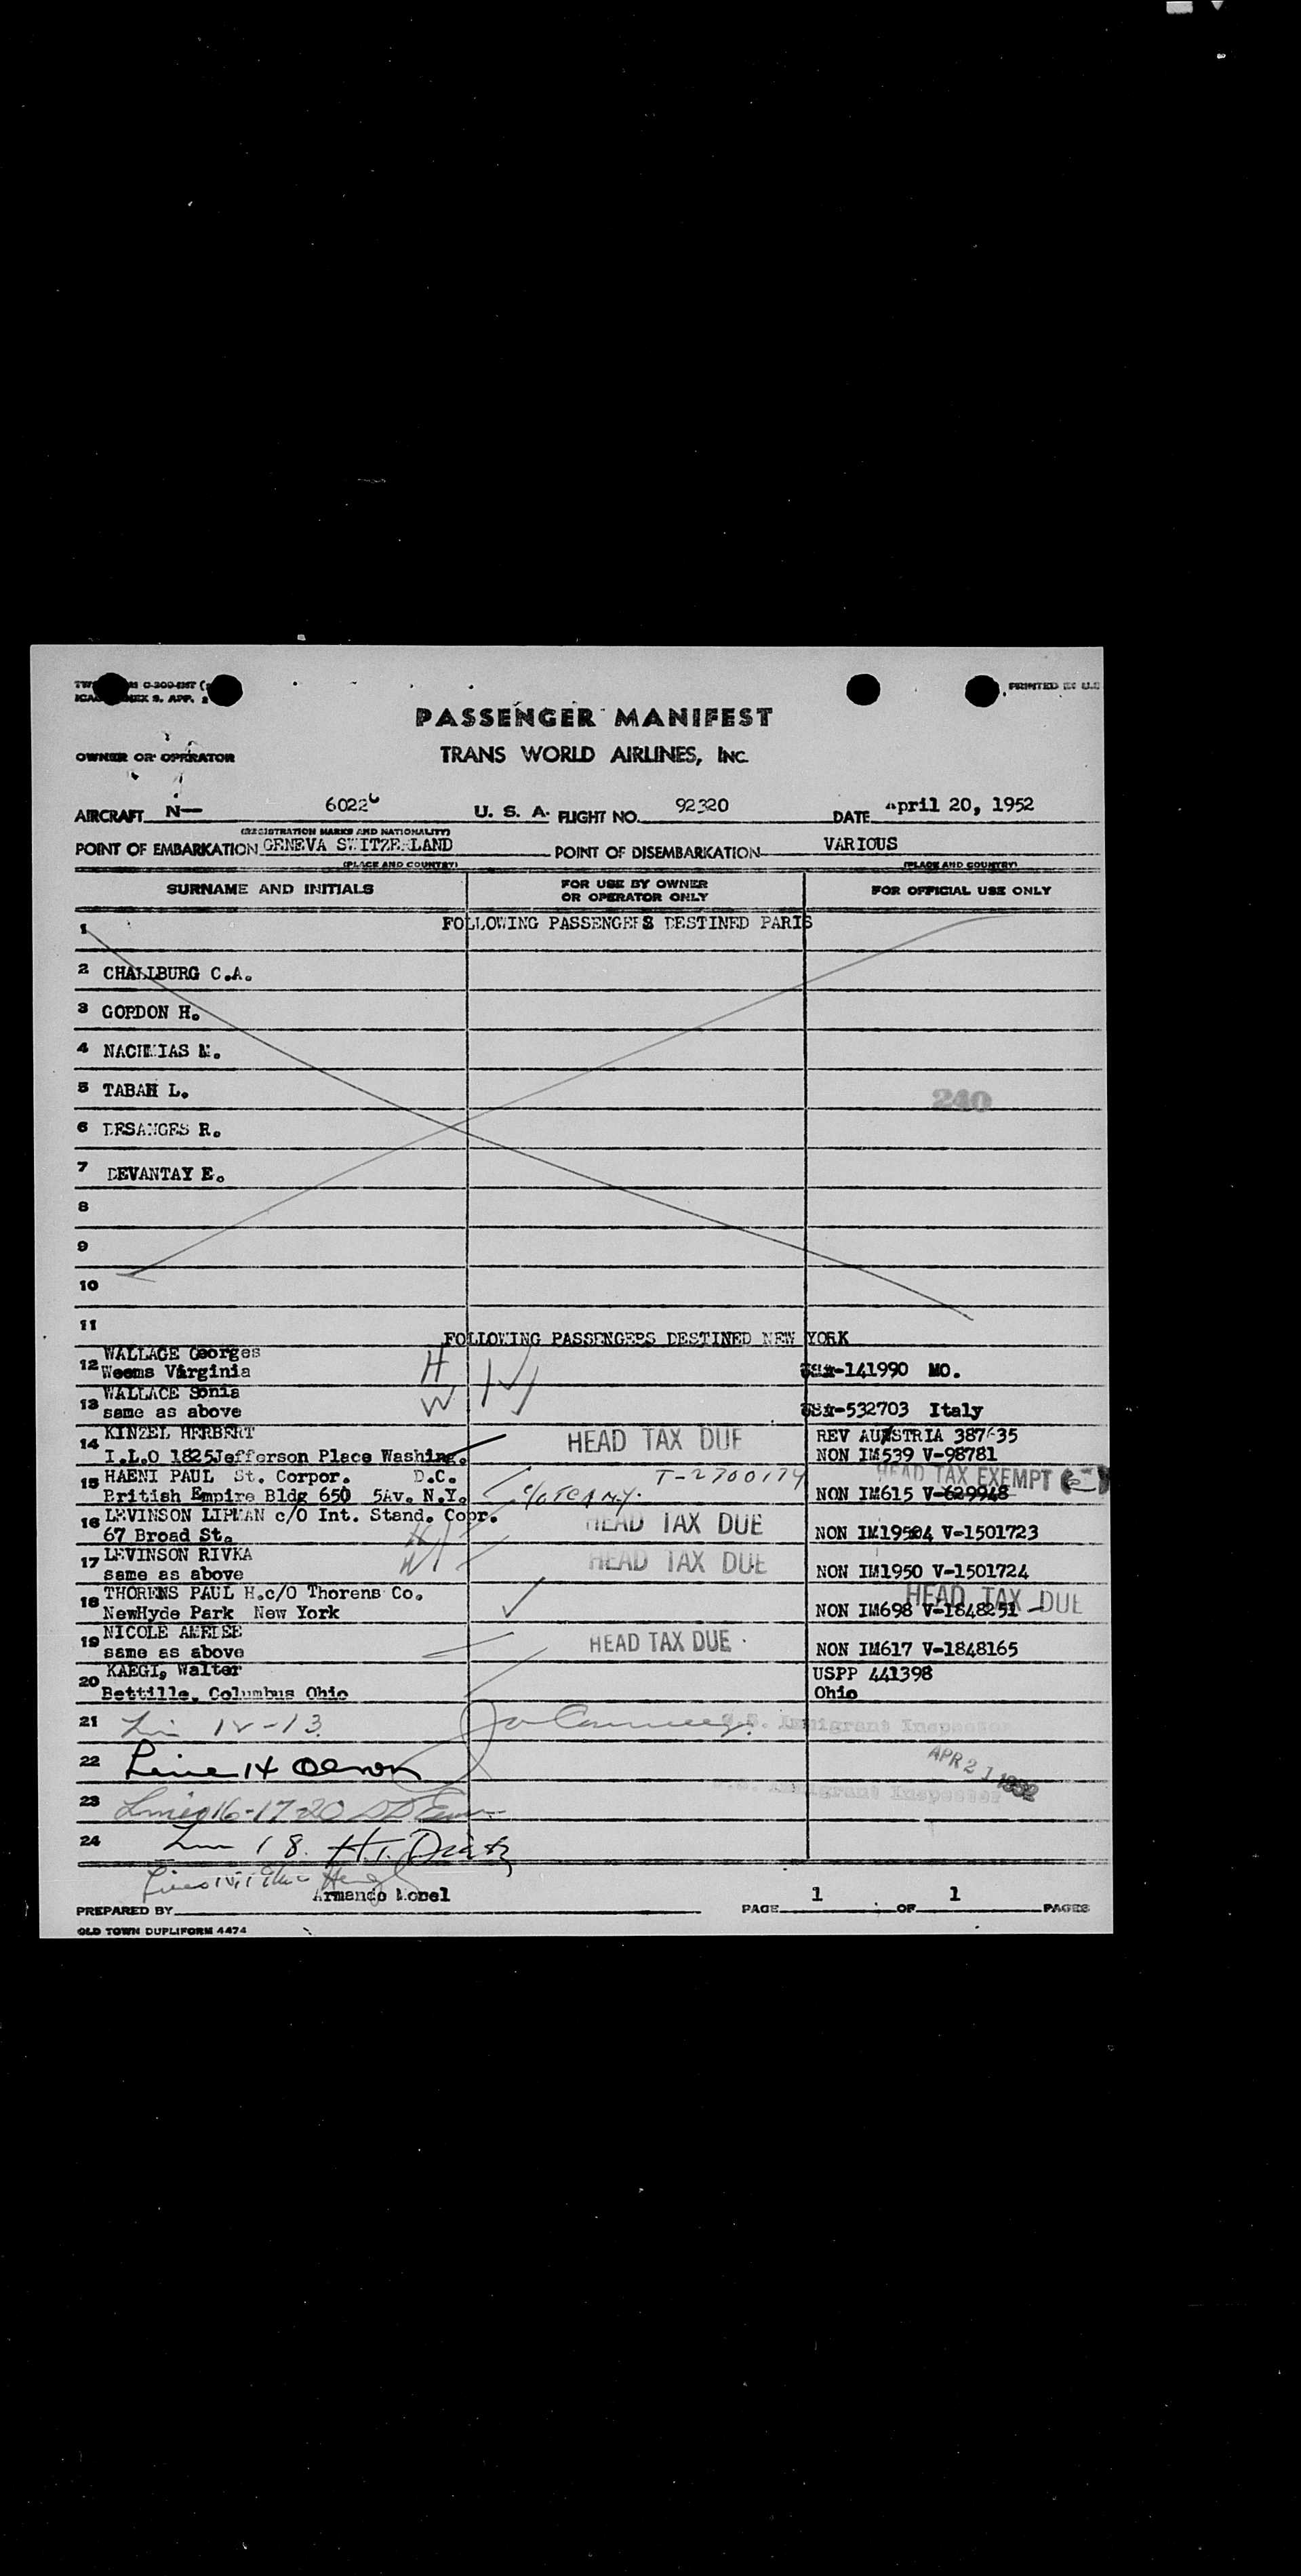 PRINTED IN U.S
PASSENGER MANIFEST
OWNER OR OPERATOR
TRANS WORLD AIRLINES, INC.
AIRCRAFT N— 6022 U. S. A. FLIGHT NO. 92320 DATE April 20, 1952
(REGISTRATION MARKS AND NATIONALITY)
POINT OF EMBARKATION GENEVA SWITZERLAND POINT OF DISEMBARKATION VARIOUS
(PLACE AND COUNTRY) (PLACE AND COUNTRY)
SURNAME AND INITIALS FOR USE BY OWNER OR OPERATOR ONLY FOR OFFICIAL USE ONLY
1 FOLLOWING PASSENGERS DESTINED PARIS
2 CHALLBURG C.A.
3 GORDON H.
4 NACHMIAS
5 TABAH L.
240
6 DESANGES R.
7 DEVANTAY E.
8
9
10
11
FOLLOWING PASSENGERS DESTINED NEW YORK
WALLACE Georges
12 Weems Virginia H -141990 MO.
WALLACE Sonia
13 same as above W -532703 Italy
14 KINZEL HERBERT HEAD TAX DUE REV AUSTRIA 387 35
I.L.O 1825 Jefferson Place Washing. NON IM539 V-98781
15 HAENI PAUL St. Corpor. D.C. T-2700174 HEAD TAX EXEMPT
British Empire Bldg 650 5Av. N.Y. NON IM615 V-629948
16 LEVINSON LIPMAN c/O Int. Stand. Copr.
67 Broad St. H HEAD TAX DUE NON IM19504 V-1501723
17 LEVINSON RIVKA
same as above W HEAD TAX DUE NON IM1950 V-1501724
18 THORENS PAUL H.c/O Thorens Co. HEAD TAX DUE
NewHyde Park New York NON IM698 V-1848251
19 NICOLE AMELEE
same as above HEAD TAX DUE NON IM617 V-1848165
20 KAEGI, Walter USPP 441398
Bettille, Columbus Ohio Ohio
21 U.S. Immigrant Inspector
22 Line 14 APR 21 1952
23 16-17-20 U.S. Immigrant Inspector
24 18
Armando
PREPARED BY PAGE 1 OF 1 PAGES
OLD TOWN DUPLIFORM 4474